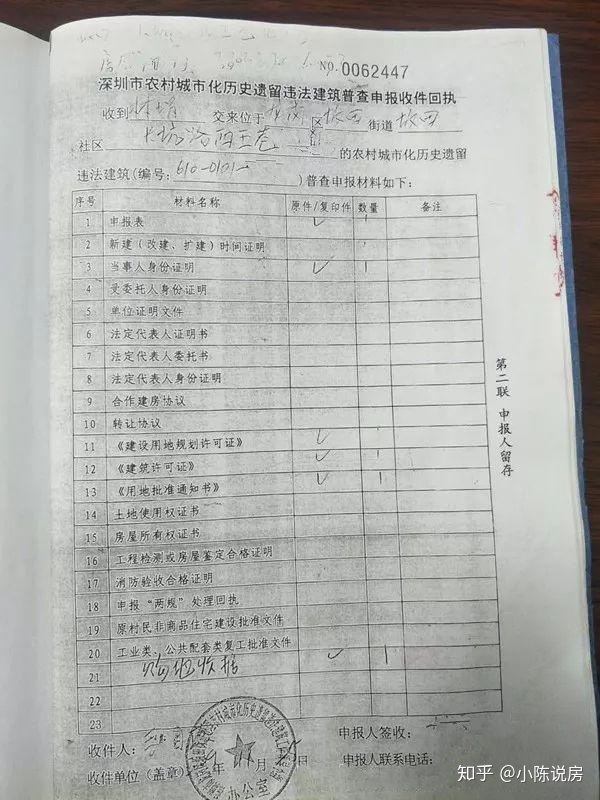 NO.0062447
深圳市农村城市化历史遗留违法建筑普查申报收件回执
收到 交来位于 区 坂田 街道 坂田
社区 的农村城市化历史遗留
违法建筑(编号: 610-0101- )普查申报材料如下:
序号 材料名称 原件/复印件 数量 备注
1 申报表 ✓
2 新建(改建、扩建)时间证明
3 当事人身份证明 ✓ 1
4 受委托人身份证明
5 单位证明文件
6 法定代表人证明书
7 法定代表人委托书
8 法定代表人身份证明
9 合作建房协议
10 转让协议
11 《建设用地规划许可证》 ✓
12 《建筑许可证》 ✓ 1
13 《用地批准通知书》 ✓ 1
14 土地使用权证书
15 房屋所有权证书
16 工程检测或房屋鉴定合格证明
17 消防验收合格证明
18 申报“两规”处理回执
19 原村民非商品住宅建设批准文件
20 工业类、公共配套类复工批准文件
21 收据 ✓ 1
22
23
收件人: 申报人签收:
收件单位(盖章) 年 月 日 申报人联系电话:
办公室
第二联 申报人留存
知乎 @小陈说房